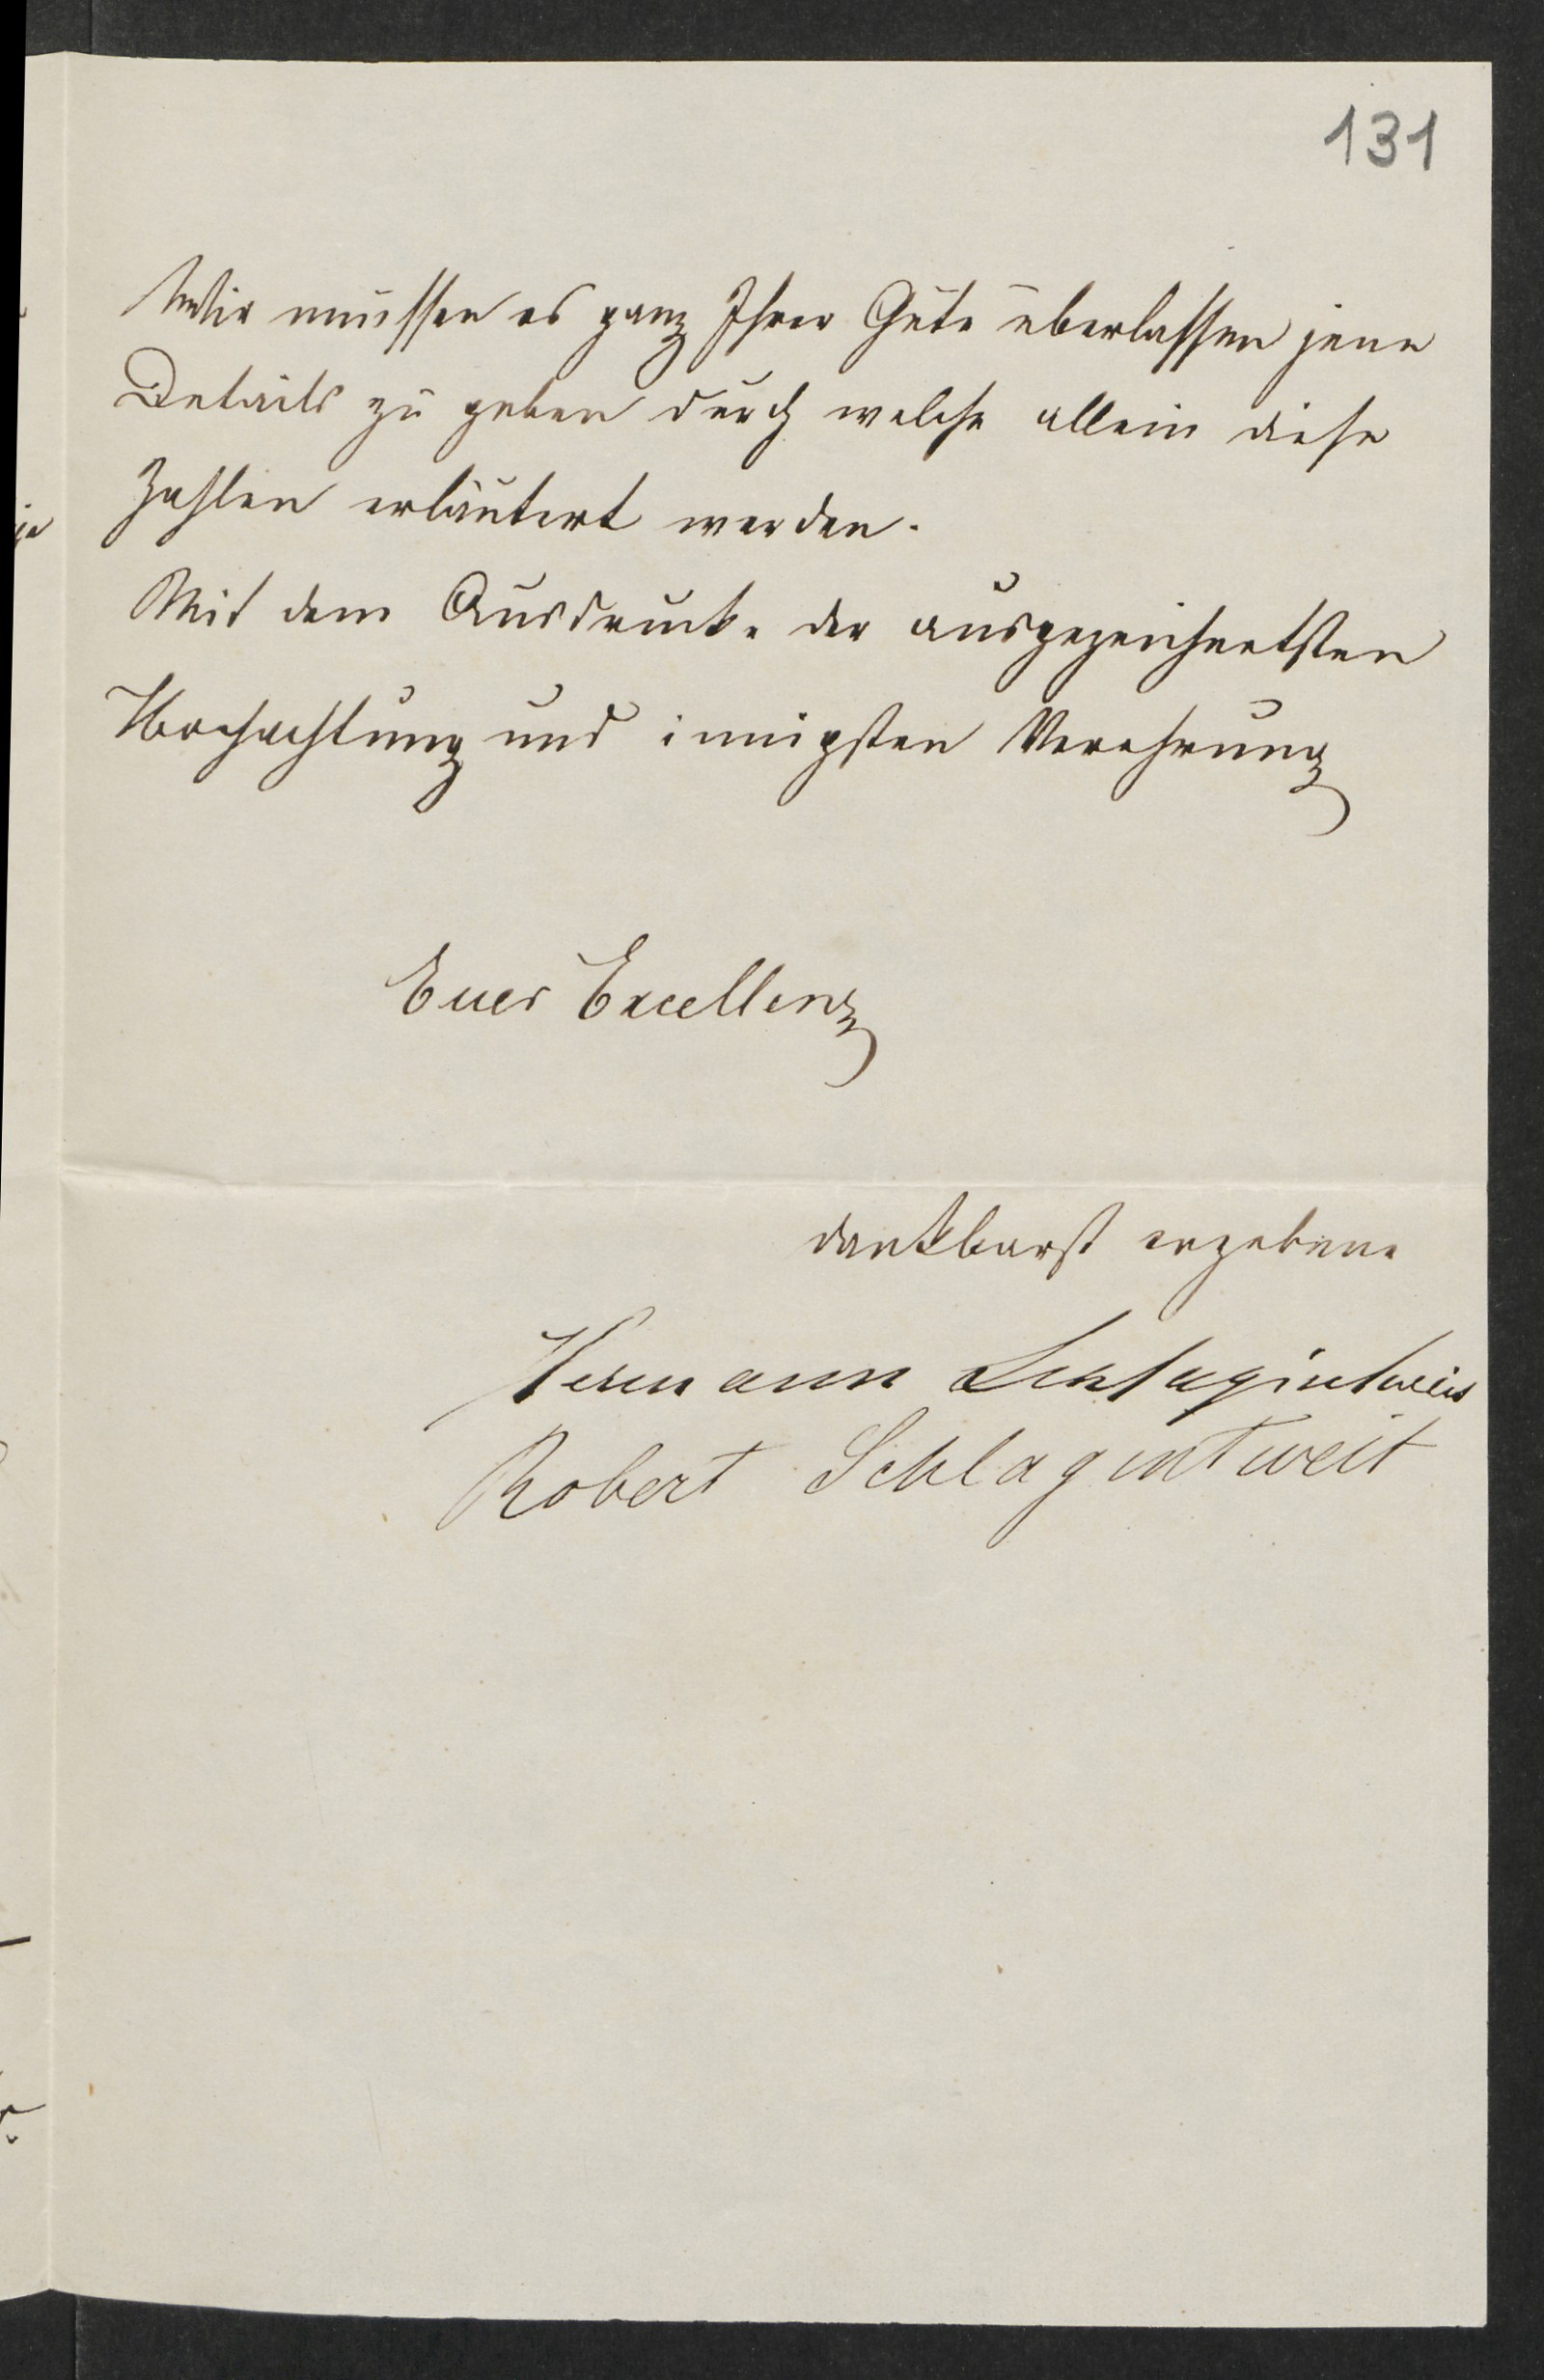 131
Wir müssen es ganz Ihrer Güte überlassen jene
Details zu geben durch welche allein diese
Zahlen erläutert werden.
Mit dem Ausdrucke der ausgezeichnetsten
Hochachtung und innigsten Verehrung
Euer Excellenz
dankbarst ergebene
Hermann Schlagintweit
Robert Schlagintweit